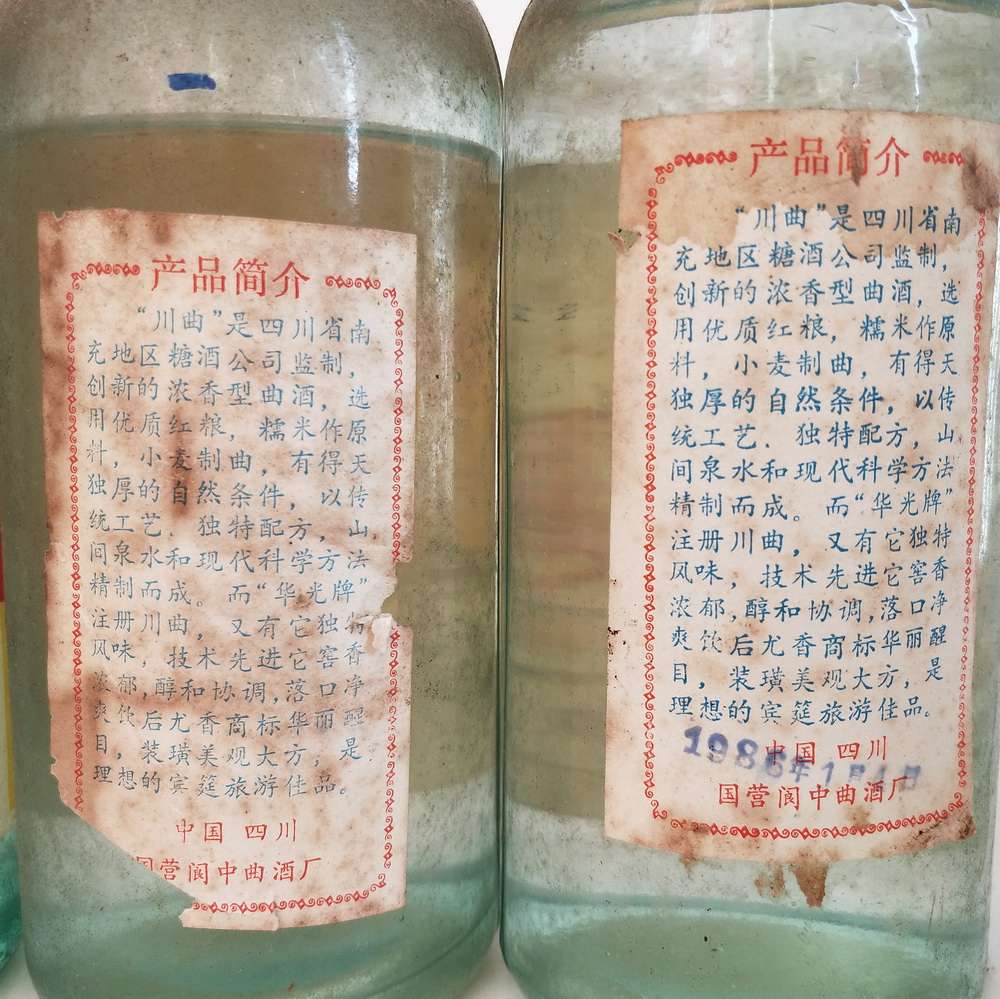 产品简介
“川曲”是四川省南
充地区糖酒公司监制，
创新的浓香型曲酒，选
用优质红粮，糯米作原
料，小麦制曲，有得天
独厚的自然条件，以传
统工艺．独特配方，山
间泉水和现代科学方法
精制而成。而“华光牌”
注册川曲，又有它独特
风味，技术先进它窖香
浓郁,醇和协调,落口净
爽饮后尤香商标华丽醒
目，装璜美观大方，是
理想的宾筵旅游佳品。
中国 四川
国营阆中曲酒厂
产品简介
“川曲”是四川省南
充地区糖酒公司监制，
创新的浓香型曲酒，选
用优质红粮，糯米作原
料，小麦制曲，有得天
独厚的自然条件，以传
统工艺．独特配方，山
间泉水和现代科学方法
精制而成。而“华光牌”
注册川曲，又有它独特
风味，技术先进它窖香
浓郁,醇和协调,落口净
爽饮后尤香商标华丽醒
目，装璜美观大方，是
理想的宾筵旅游佳品。
中国 四川
1986年1月
国营阆中曲酒厂